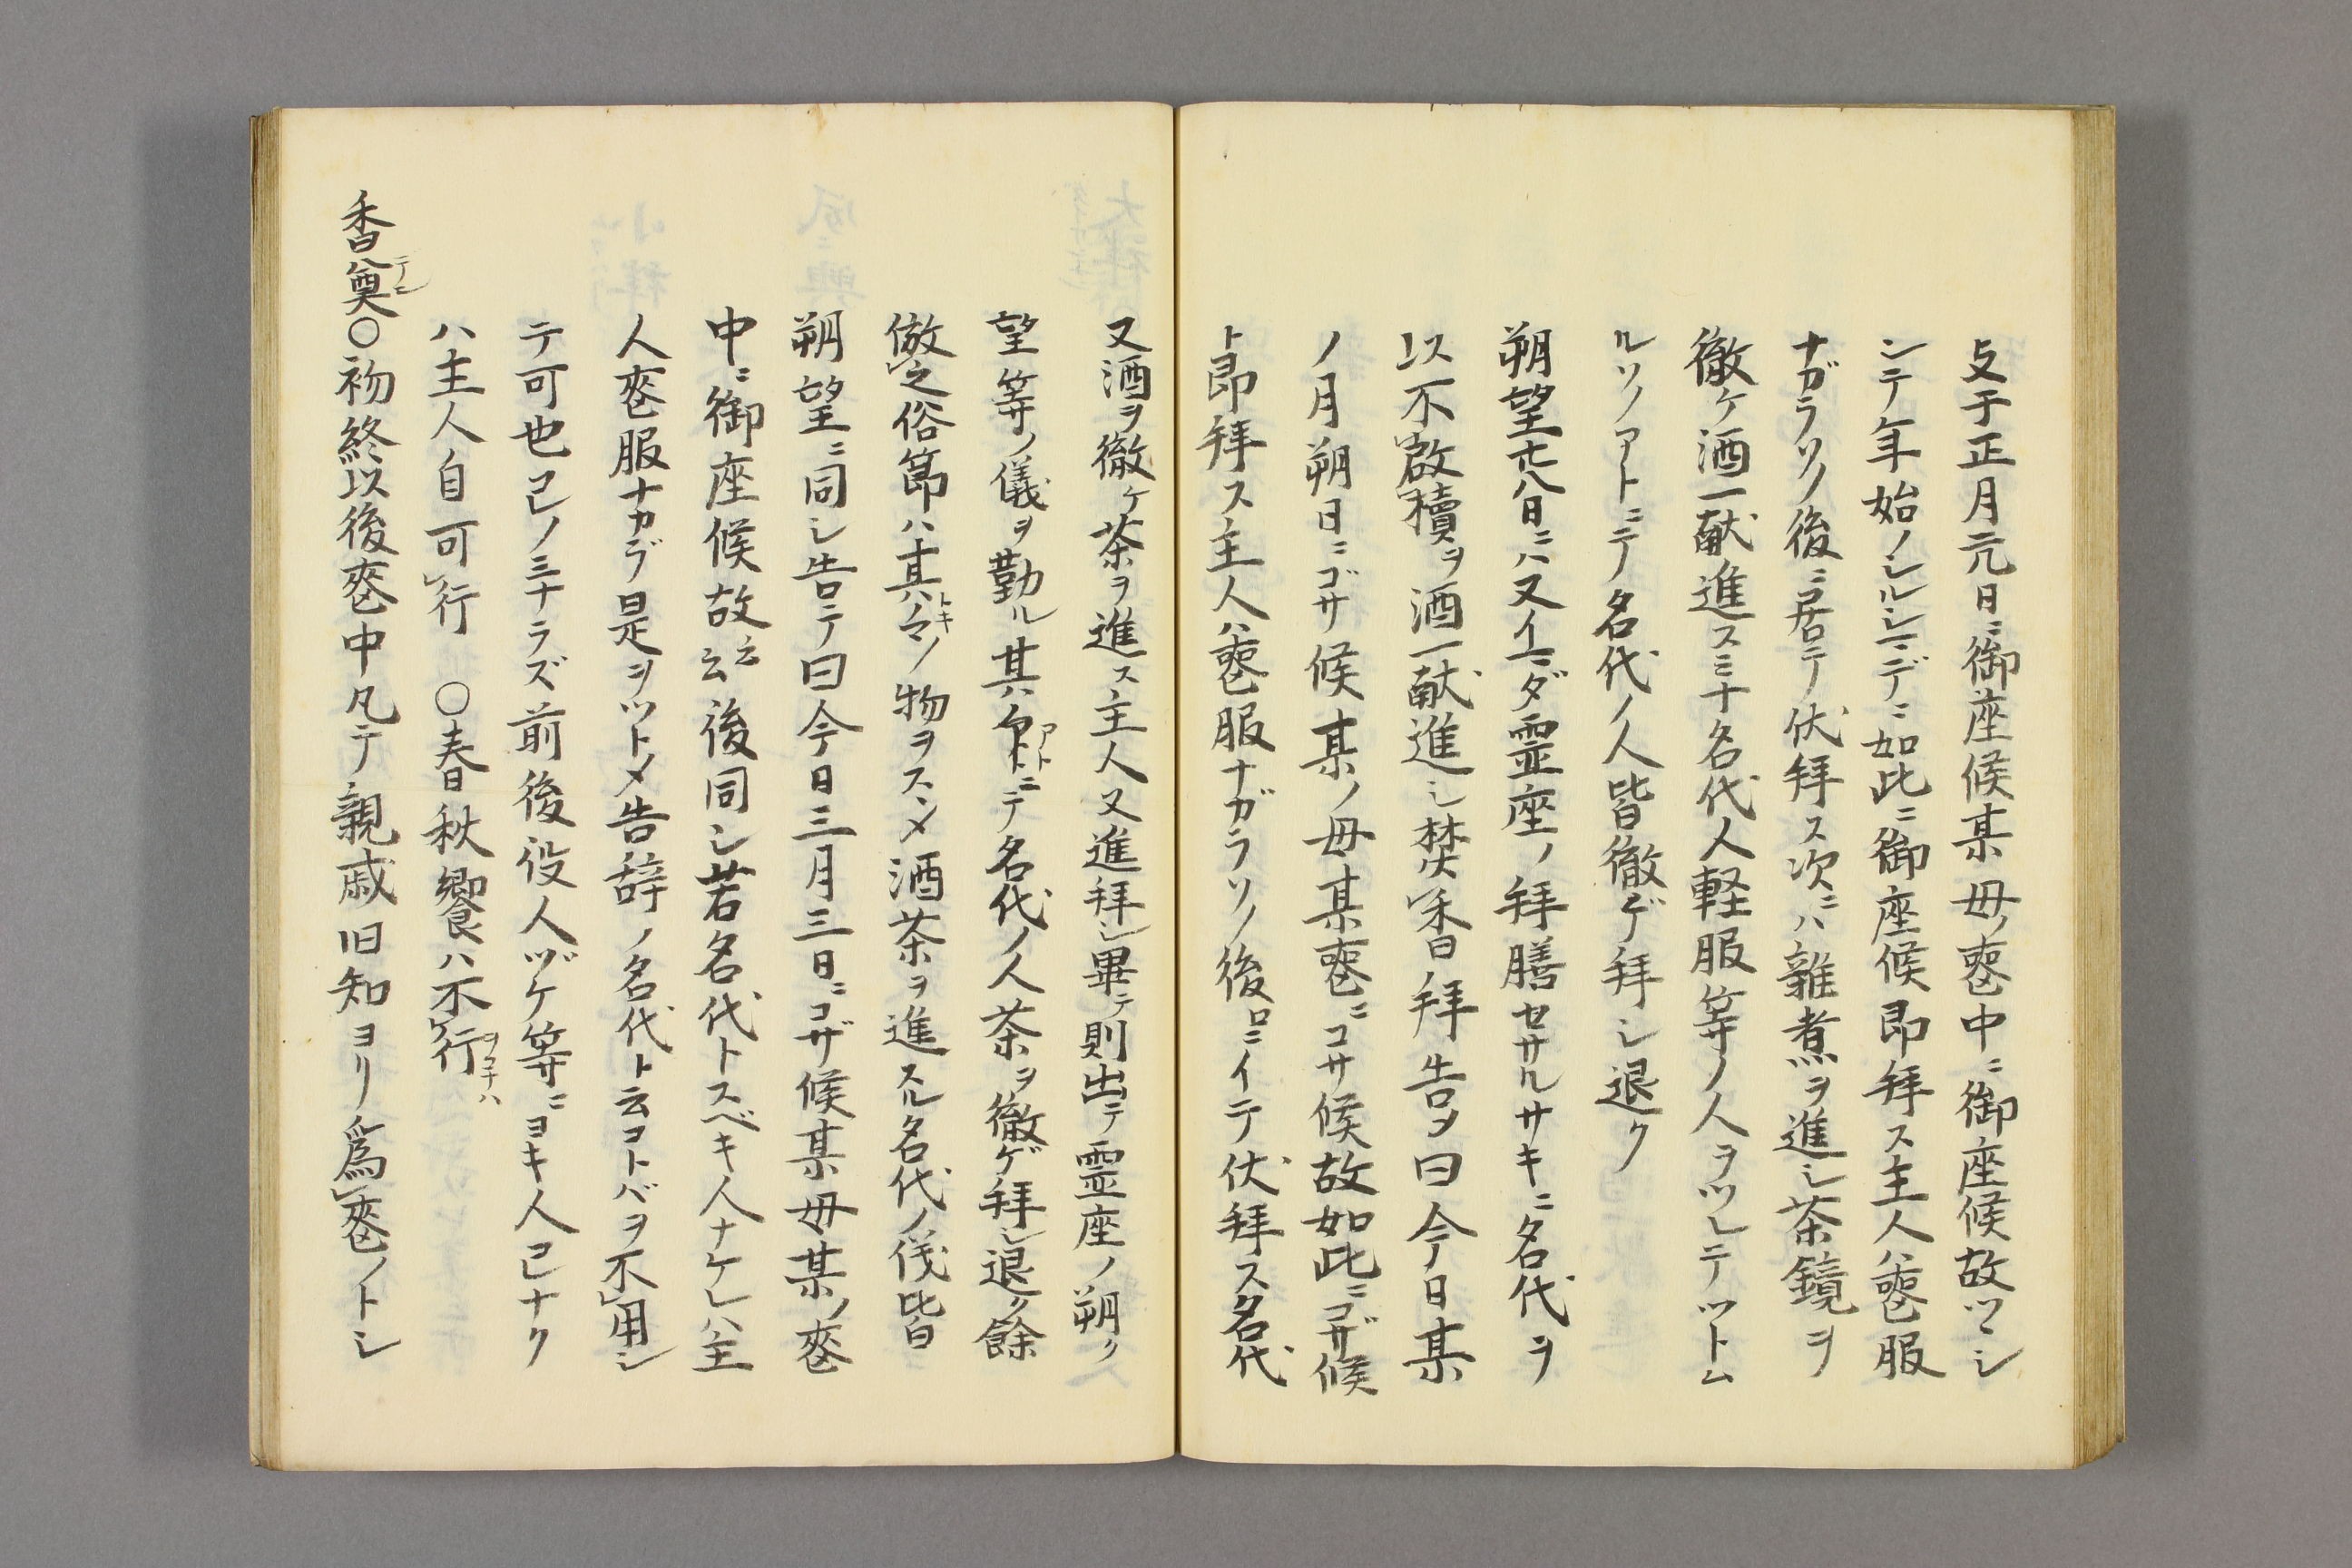 与于正月元日ニ御座候某母ノ喪中ニ御座候故ツヽシ
ンテ年始ノシルシニデニ如此ニ御座候即拜ス主人ハ喪服
ナガラソノ後ニ居テ伏拜ス次ニハ雜煮ヲ進シ茶鏡ヲ
徹ケ酒一献進スミナ名代人軽服等ノ人ヲツレテツトム
ルソノアトニテ名代ノ人皆徹ゲ拜シ退ク
朔望廿八日ニハ又イマダ霊座ノ拜膳セサルサキニ名代ヲ
以不啟櫝ヲ酒一献進シ焚香拜告メ曰今日某
ノ月朔日ニゴサ候某ノ母某喪ニコサ候故如此ニゴザ候
ト即拜ス主人ハ喪服ナガラソノ後ロニイテ伏拜ス名代
又酒ヲ徹ケ茶ヲ進ス主人又進拜シ畢テ則出テ霊座ノ朔ク
望等ノ儀ヲ勤ル其ハアトニテ名代ノ人茶ヲ徹ゲ拜シ退ク餘
倣之俗節ハ其ハトキノ物ヲスヽメ酒茶ヲ進スル名代ノ儀皆
朔望ニ同シ告テ曰今日三月三日ニコザ候某母某ノ喪
中ニ御座候故云云後同シ若名代トスベキ人ナケレハ主
人喪服ナカラ是ヲツトメ告辞ノ名代ト云コトバヲ不用シ
テ可也コレノミナラズ前後役人ヅケ等ニヨキ人コレナク
ハ主人自可行　○春秋饗ハ不行ヲコナハ
香奠テン○初終以後喪中凡テ親戚旧知ヨリ為喪ノトシ